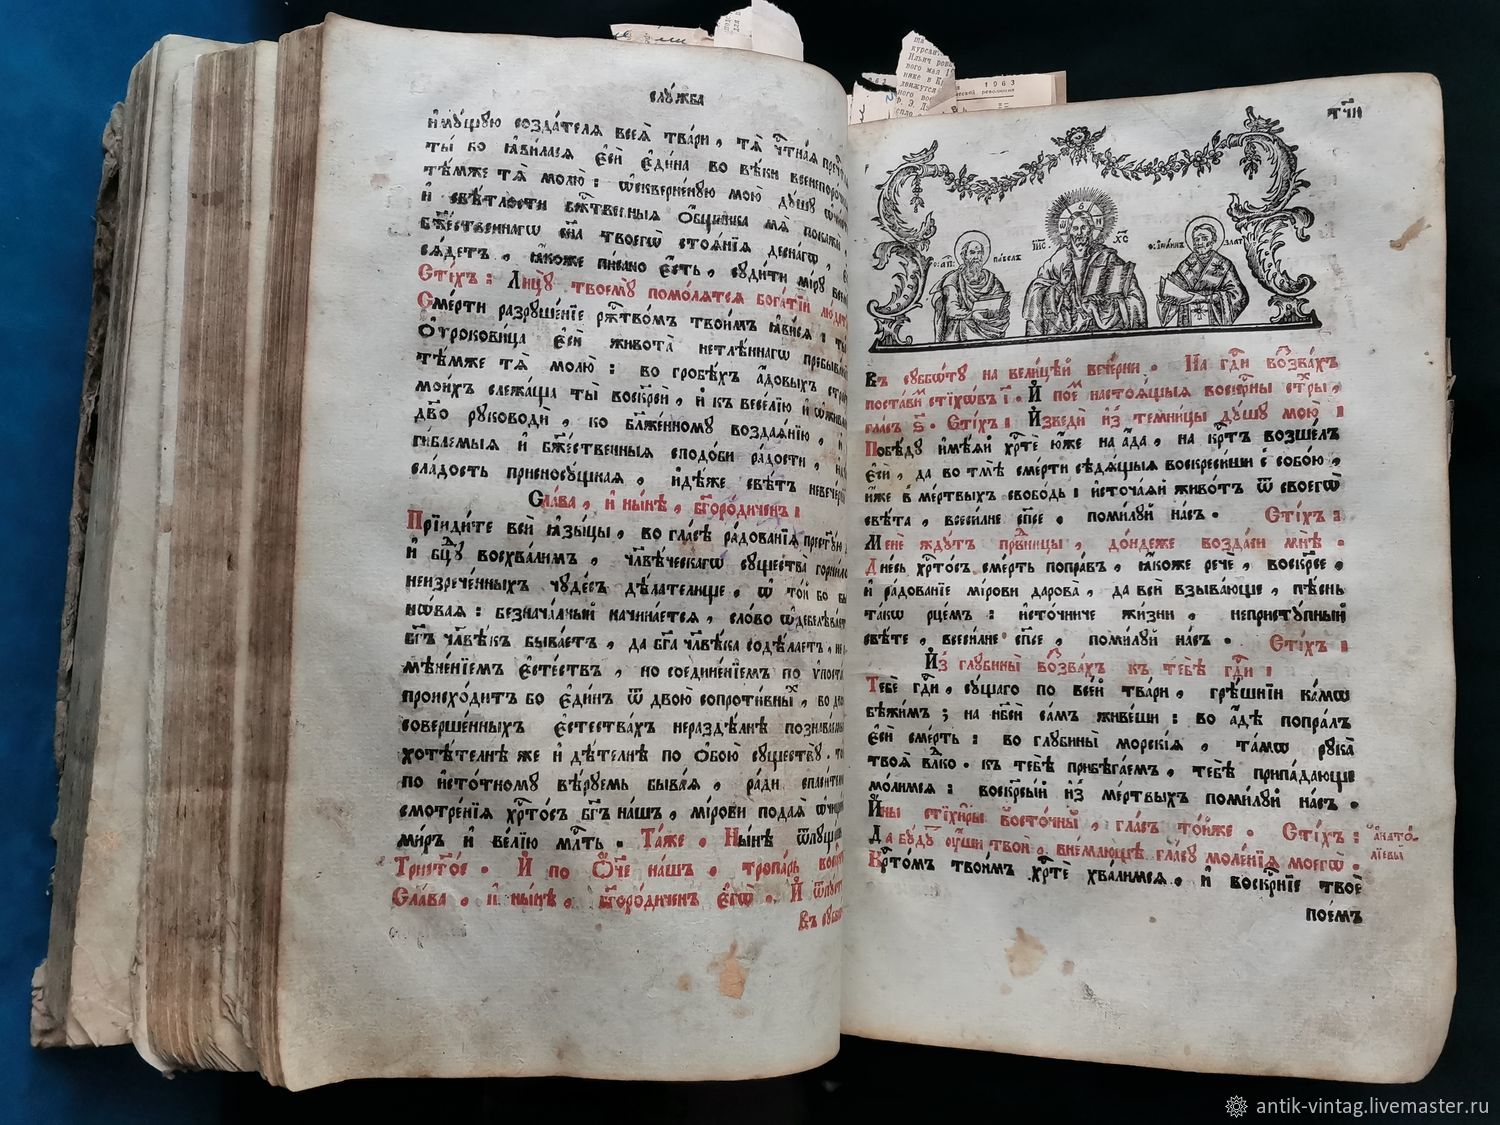 служба
и҆мꙋ́щꙋю созда́телѧ всеѧ̀ тва́ри, тѧ̀ чⷭ҇тнаѧ
ты́ бо ꙗ҆ви́ласѧ є҆сѝ є҆ди́на во вѣ́ки
тѣ́мже тѧ̀ молю̀: ѡ҆скверне́нꙋю мою̀ дꙋ́шꙋ
и҆ свѣ́тлости бжⷭ҇твенныѧ ѻ҆́бщника мѧ̀ покажѝ
бжⷭ҇твеннагѡ сн҃а твоегѡ̀ стоѧ́нїѧ деснагѡ,
сѧ́детъ, ꙗ҆́коже пи́сано є҆́сть, сꙋди́ти мі́рꙋ
Сті́хъ: Лицꙋ̀ твоемꙋ̀ помо́лѧтсѧ бога́тїи лю́дстїи
Сме́рти разрꙋше́нїе ржⷭ҇тво́мъ твои́мъ ꙗ҆ви́сѧ:
ѻ҆трокови́ца є҆сѝ живота̀ нетлѣ́ннагѡ
тѣ́мже тѧ̀ молю̀: во гробѣ́хъ а҆́довыхъ
мои́хъ слежа́ща ты̀ воскресѝ, и҆ къ весе́лїю и҆
дв҃о рꙋководѝ, ко бл҃же́нномꙋ воздаѧ́нїю, и҆
ги́блемыѧ и҆ бжⷭ҇твенныѧ сподо́би ра́дости,
сла́дость присносꙋ́щнаѧ, и҆дѣ́же свѣ́тъ невече́рнїй
Сла́ва, и҆ ны́нѣ, бг҃оро́диченъ:
Прїиди́те всѝ ꙗ҆зы́цы, во гла́сѣ ра́дованїѧ престꙋ́ю
и҆ бцⷣꙋ восхва́лимъ, чл҃вѣ́ческагѡ сꙋщества̀ горни́ло
неизрече́нныхъ чꙋде́съ дѣ́лателище, ѡ҆ то́й бо
нѡ́ваѧ: безнача́лный начина́етсѧ, сло́во ѡ҆дебелѣва́етъ
бг҃ъ чл҃вѣ́къ быва́етъ, да бг҃а чл҃вѣ́ка содѣ́лаетъ,
мѣне́нїемъ є҆сте́ствъ, но соедине́нїемъ по
происхо́дитъ бо є҆ди́нъ ѿ двою̀ сопроти́вныхъ, во
соверше́нныхъ є҆стества́хъ нераздѣ́лнѣ познава́емь
хотѣ́телнѣ же и҆ дѣ́телнѣ по ѻ҆бою̀ сꙋществꙋ̀.
по и҆сто́тномꙋ вѣ́рꙋемь быва́ѧ, ра́ди
смотре́нїѧ хрⷭ҇то́съ бг҃ъ на́шъ, мі́рови пода́ѧ
ми́ръ и҆ ве́лїю млⷭ҇ть. Та́же. Ны́нѣ ѿпꙋща́еши
Трист҃о́е. И҆ по ѻ҆́ч҃е на́шъ. тропа́рь
Сла́ва, и҆ ны́нѣ, бг҃оро́диченъ є҆гѡ̀. И҆ ѿпꙋ́стъ
Въ сꙋббѡ́тꙋ
т҃їи
І҆И҃С ХС҃
ѻ҆: а҆п: па́велъ
ѻ҆: і҆ѡа́ннъ злат
Въ сꙋббѡ́тꙋ на вели́цѣй вече́рни. На гдⷭ҇и воззва́хъ
поста́ви сті́хѡвъ і҃. И҆ пое́мъ настоѧ́щыѧ воскрⷭ҇ны стїхи́ры,
гла́съ ѕ҃. Сті́хъ: И҆зведѝ и҆з̾ темни́цы дꙋ́шꙋ мою̀:
Побѣ́дꙋ и҆мѣ́ѧй хрⷭ҇тѐ ю҆́же на а҆́да, на крⷭ҇тъ возше́лъ
є҆сѝ, да во тмѣ̀ сме́рти сѣдѧ́щыѧ воскреси́ши с̾ собо́ю,
и҆́же в̾ ме́ртвыхъ свобо́дь: и҆сточа́ѧй живо́тъ ѿ своегѡ̀
свѣ́та, всеси́лне сп҃се, поми́лꙋй на́съ. Сті́хъ:
Менѐ ждꙋ́тъ прⷣвницы, до́ндеже возда́си мнѣ̀.
Дне́сь хрⷭ҇то́съ сме́рть попра́въ, ꙗ҆́коже речѐ, воскре́се,
и҆ ра́дованїе мі́рови дарова̀, да всѝ взыва́юще, пѣ́снь
та́кѡ рце́мъ: и҆сто́чниче жи́зни, непристꙋ́пный
свѣ́те, всеси́лне сп҃се, поми́лꙋй на́съ. Сті́хъ:
И҆з̾ глꙋбины̀ воззва́хъ къ тебѣ̀ гдⷭ҇и:
Тебѐ гдⷭ҇и, сꙋ́щаго по все́й тва́ри, грѣ́шнїи ка́мѡ
бѣжи́мъ; на нб҃сѝ са́мъ живе́ши: во а҆́дѣ попра́лъ
є҆сѝ сме́рть: во глꙋбины̀ морскі́ѧ, та́мѡ рꙋка̀
твоѧ̀ влⷣко. къ тебѣ̀ прибѣга́емъ, тебѣ̀ припа́дающе
мо́лимсѧ: воскресы́й и҆з̾ ме́ртвыхъ поми́лꙋй на́съ.
И҆́ны стїхи̑ры восто́чны, гла́съ то́йже. Сті́хъ:
а҆нато́-
Да бꙋ́дꙋтъ ᲂу҆́ши твоѝ, вне́млющѣ гла́сꙋ моле́нїѧ моегѡ̀.
лїевы
Крⷭ҇то́мъ твои́мъ хрⷭ҇тѐ хва́лимсѧ, и҆ воскрⷭ҇нїе твоѐ
пое́мъ
1963
antik-vintag.livemaster.ru